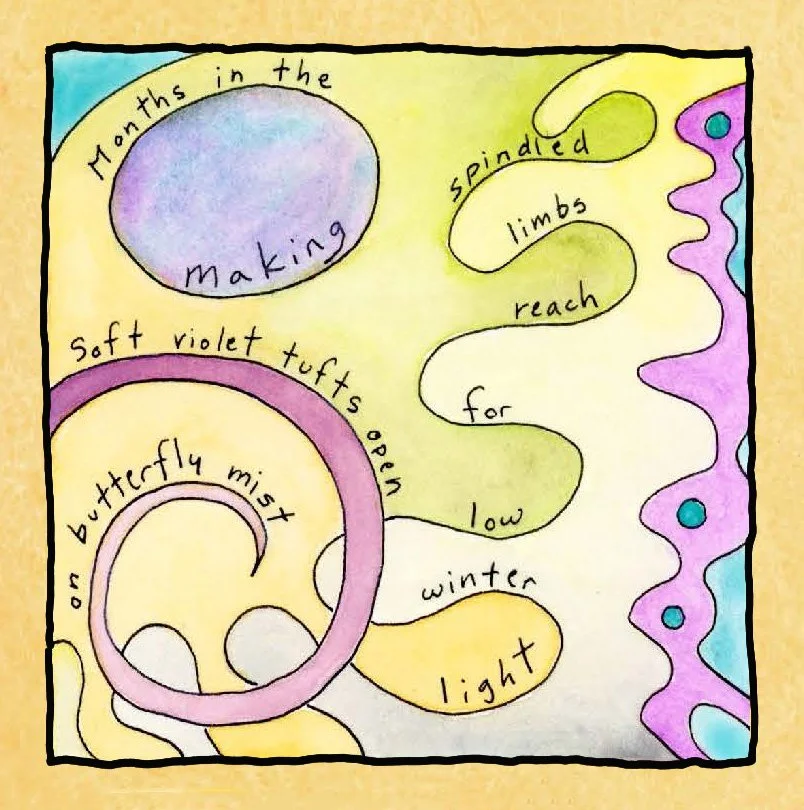 Months in the
making
spindled
limbs
reach
for
low
winter
light
Soft violet tufts open
on butterfly mist